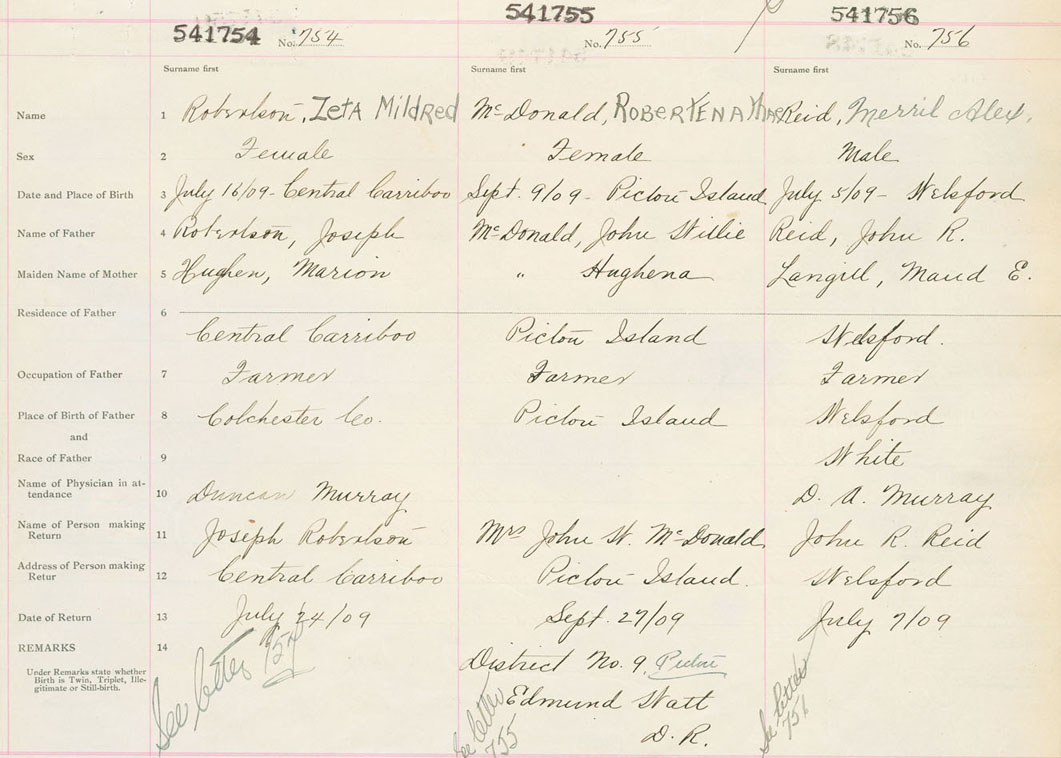 541754 No. 754 541755 No. 755 541756 No. 756
Surname first Surname first Surname first
Name 1 Robertson, ZETA MildREd McDonald, ROBERTENA MAE Reid, Merril Alex.
Sex 2 Female Female Male
Date and Place of Birth 3 July 16/09 - Central Carriboo Sept. 9/09 - Pictou Island July 5/09 - Welsford
Name of Father 4 Robertson, Joseph McDonald, John Willie Reid, John R.
Maiden Name of Mother 5 Hughen, Marion " Hughena Langill, Maud E.
Residence of Father 6 Central Carriboo Pictou Island Welsford.
Occupation of Father 7 Farmer Farmer Farmer
Place of Birth of Father 8 Colchester Co. Pictou Island Welsford
and
Race of Father 9 White
Name of Physician in at-
tendance 10 Duncan Murray D. A. Murray
Name of Person making
Return 11 Joseph Robertson Mrs John W. McDonald John R. Reid
Address of Person making
Retur 12 Central Carriboo Pictou Island. Welsford
Date of Return 13 July 24/09 Sept. 27/09 July 7/09
REMARKS 14 District No. 9 Pictou
Under Remarks state whether
Birth is Twin, Triplet, Ille-
gitimate or Still-birth.
Edmund Watt
D. R.
See letter 754
See letter 755
See letter 756